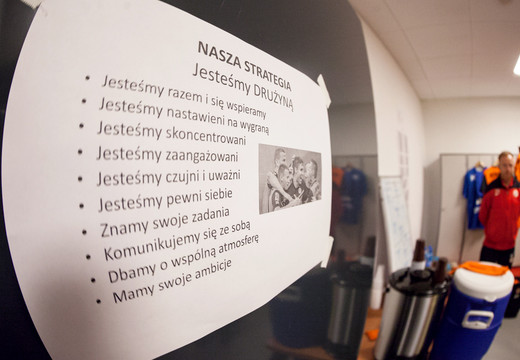 NASZA STRATEGIA
Jesteśmy DRUŻYNĄ
• Jesteśmy razem i się wspieramy
• Jesteśmy nastawieni na wygraną
• Jesteśmy skoncentrowani
• Jesteśmy zaangażowani
• Jesteśmy czujni i uważni
• Jesteśmy pewni siebie
• Znamy swoje zadania
• Komunikujemy się ze sobą
• Dbamy o wspólną atmosferę
• Mamy swoje ambicje